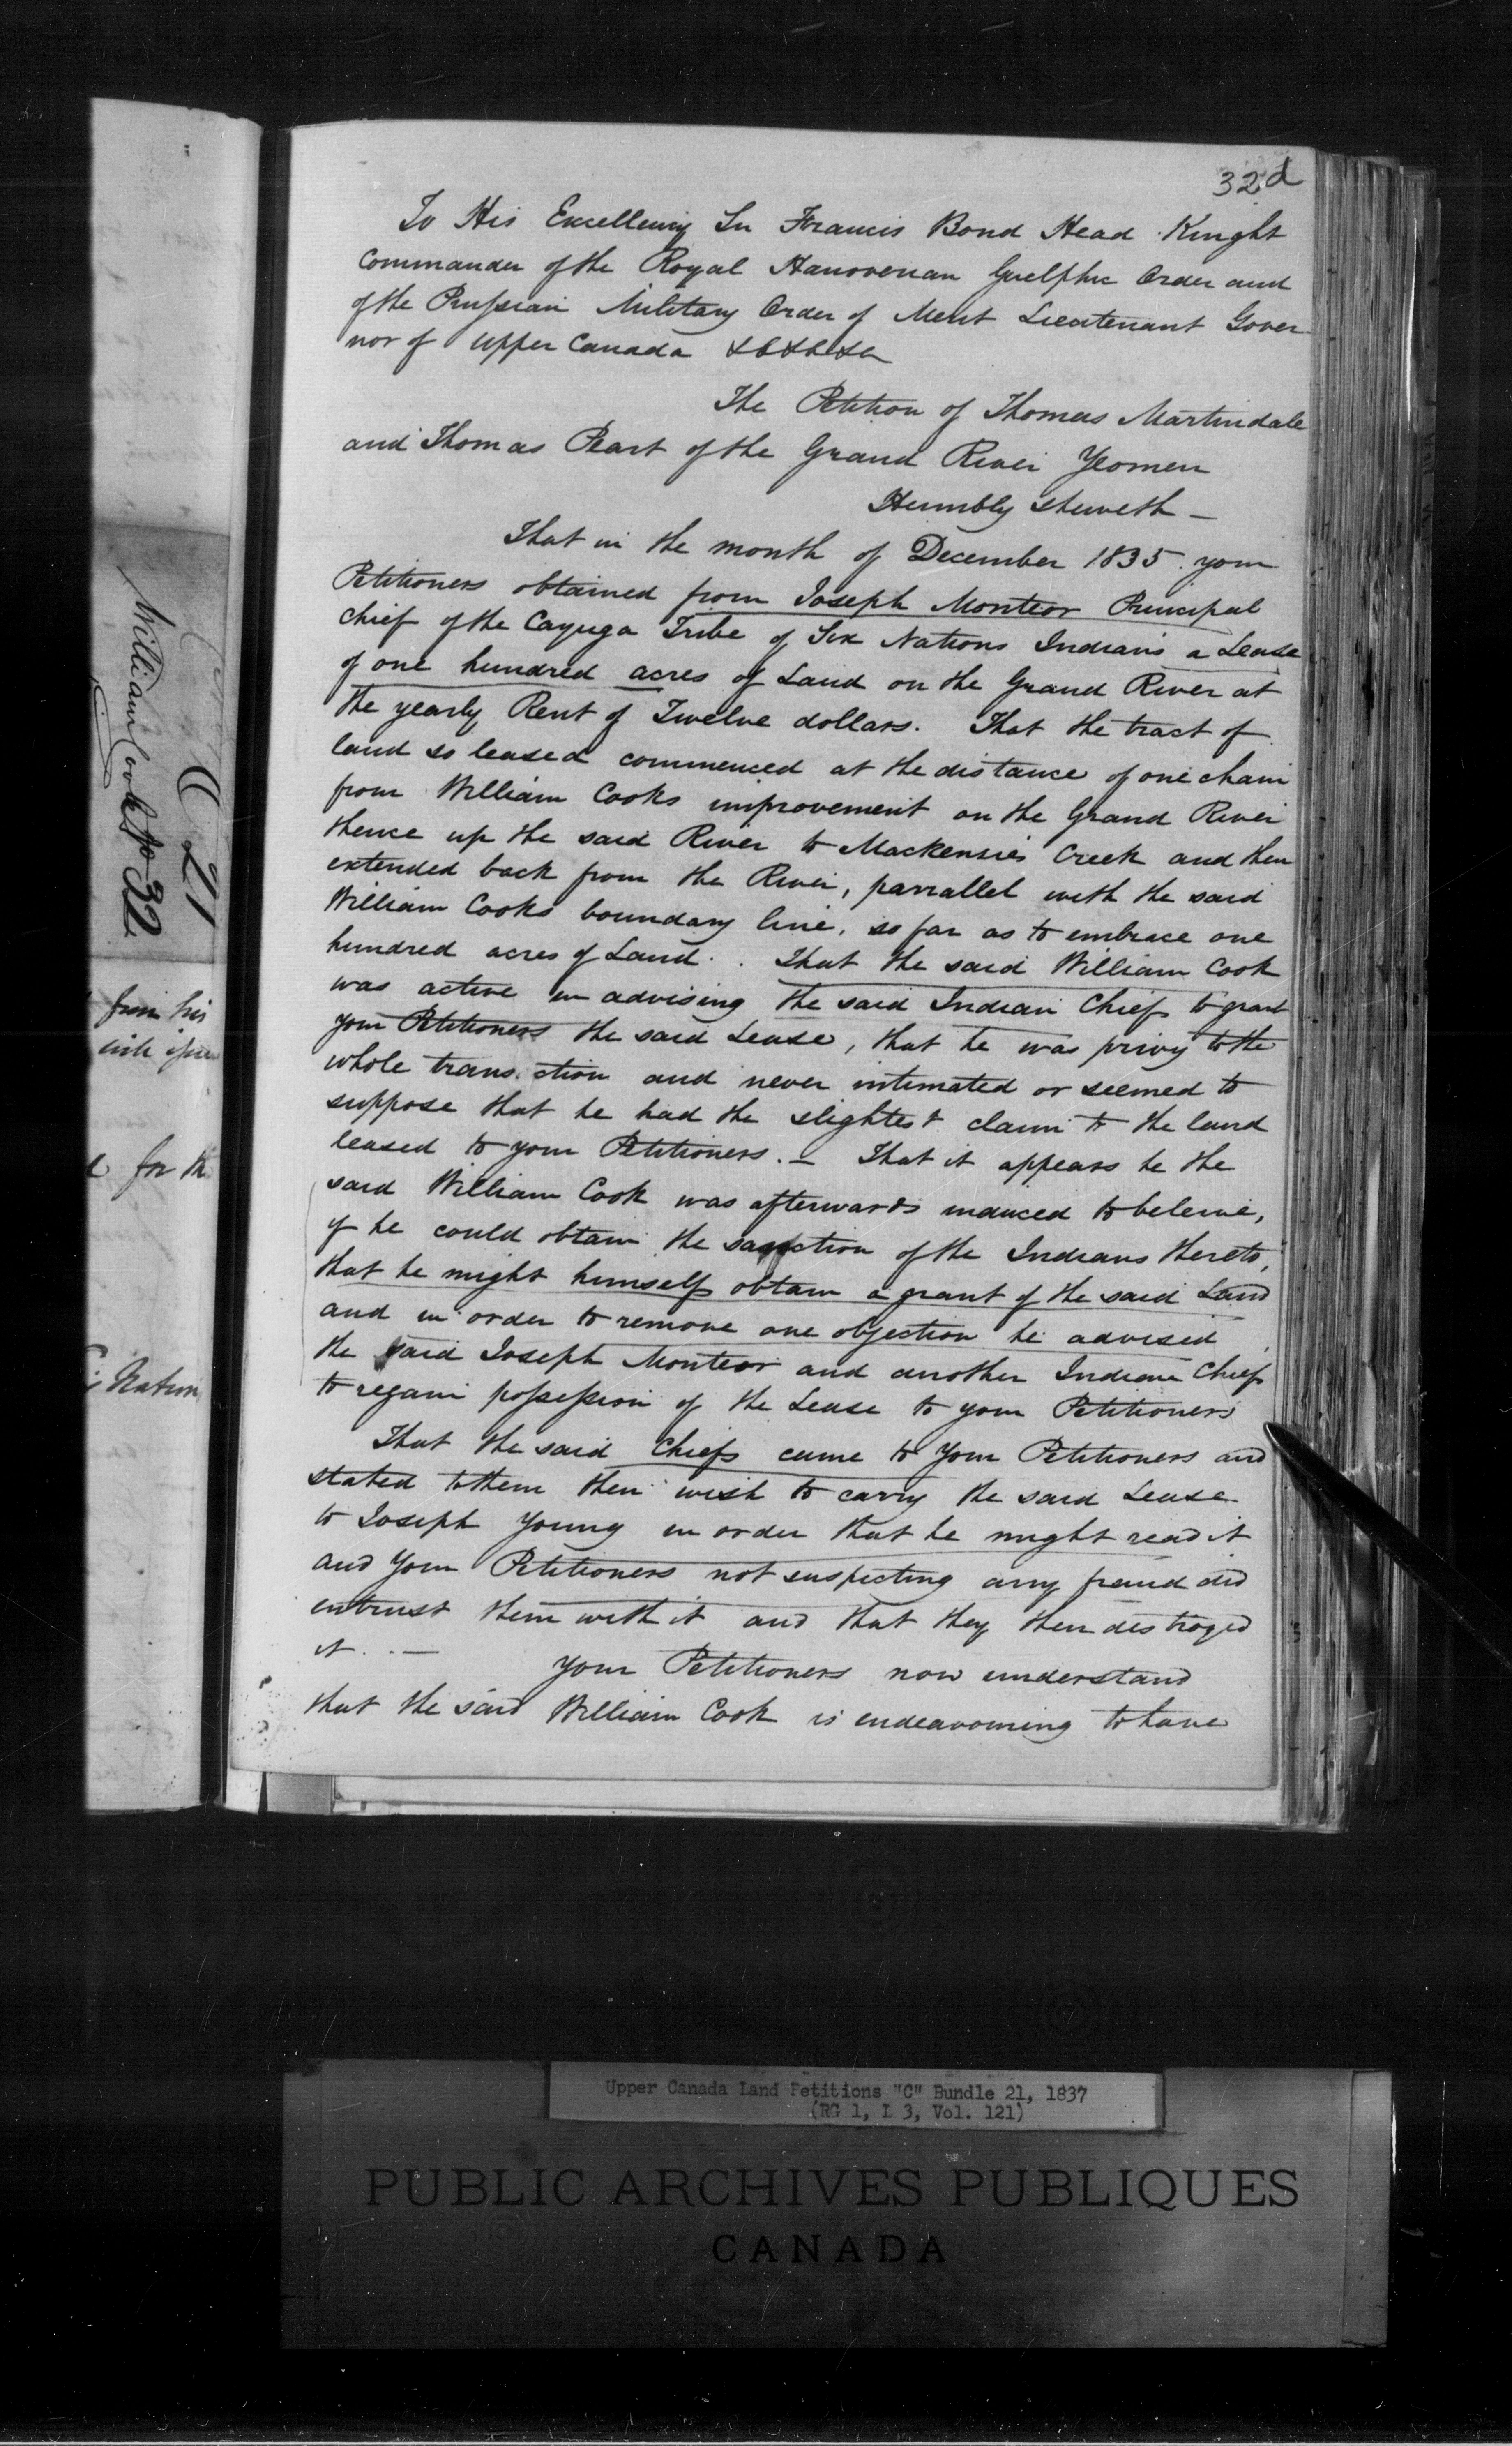 32d
To His Excellency Sir Francis Bond Head Knight
Commander of the Royal Hanoverian Guelphic Order and
of the Prussian Military Order of Merit Lieutenant Gover-
nor of Upper Canada &c &c &c
The Petition of Thomas Martindale
and Thomas Peart of the Grand River Yeomen
Humbly Sheweth —
That in the month of December 1835 your
Petitioners obtained from Joseph Monteor Principal
Chief of the Cayuga Tribe of Six Nations Indians a Lease
of one hundred acres of Land on the Grand River at
the yearly Rent of Twelve dollars. That the tract of
land so leased commenced at the distance of one chain
from William Cooks improvement on the Grand River
thence up the said River to Mackensies Creek and then
extended back from the River, parrallel with the said
William Cooks boundary line, so far as to embrace one
hundred acres of Land. That the said William Cook
was active in advising the said Indian Chief to grant
your Petitioners the said Lease, that he was privy to the
whole transaction and never intimated or seemed to
suppose that he had the slightest claim to the land
leased to your Petitioners. — That it appears he the
said William Cook was afterwards induced to beleive,
if he could obtain the sanction of the Indians thereto,
that he might himself obtain a grant of the said Land
and in order to remove one objection he advised
the said Joseph Monteor and another Indian Chief
to regain possession of the Lease to your Petitioners
That the said Chiefs came to your Petitioners and
stated to them their wish to carry the said Lease
to Joseph Young in order that he might read it
and your Petitioners not suspecting any fraud did
entrust them with it and that they then destroyed
it. —
Your Petitioners now understand
that the said William Cook is endeavouring to have
William Cook No 32
C 21
from his
for the
Nation
Upper Canada Land Petitions "C" Bundle 21, 1837
(RG 1, L 3, Vol. 121)
PUBLIC ARCHIVES PUBLIQUES
CANADA